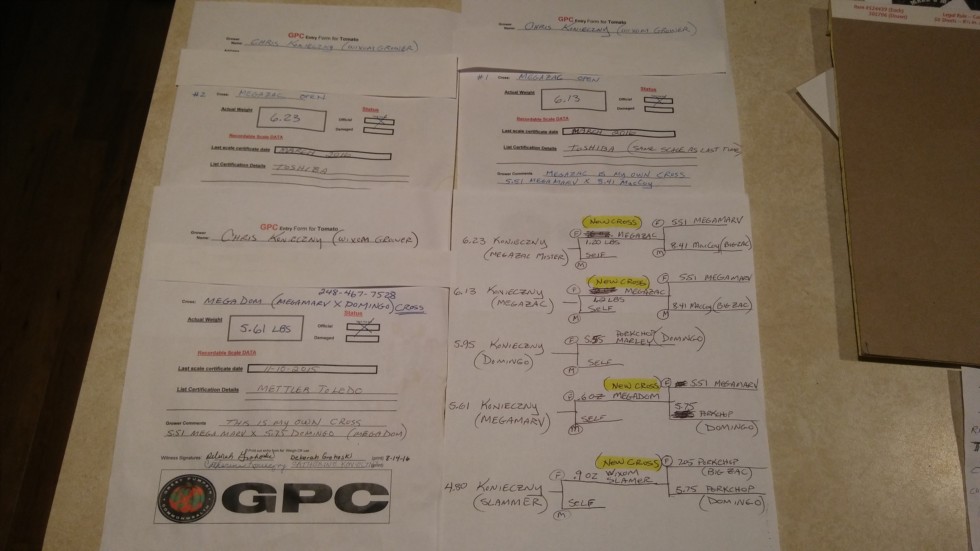 GPC Entry Form for Tomato
Grower Name CHRIS KONIECZNY (WIXOM GROWER)
GPC Entry Form for Tomato
Grower Name CHRIS KONIECZNY (WIXOM GROWER)
#2 Cross: MEGAZAC OPEN
Actual Weight 6.23
Status
Official
Damaged
Recordable Scale DATA
Last scale certificate date MARCH 2016
List Certification Details TOSHIBA
#1 Cross: MEGAZAC OPEN
Actual Weight 6.13
Status
Official
Damaged
Recordable Scale DATA
Last scale certificate date MARCH 2016
List Certification Details TOSHIBA (SAME SCALE AS LAST TIME)
Grower Comments MEGAZAC IS MY OWN CROSS
5.51 MEGAMARV X 8.41 MacCoy
GPC Entry Form for Tomato
Grower Name CHRIS KONIECZNY (WIXOM GROWER)
248-467-7528
Cross: MEGADOM (MEGAMARV X DOMINGO) CROSS
Actual Weight 5.61 LBS
Status
Official
Damaged
Recordable Scale DATA
Last scale certificate date 11-10-2015
List Certification Details METTLER TOLEDO
Grower Comments THIS IS MY OWN CROSS
5.51 MEGA MARV X 5.75 DOMINGO (MEGADOM)
Witness Signatures Deborah Grohoski 8-14-16
GPC
NEW CROSS
6.23 KONIECZNY (MEGAZAC MISTER)
F MEGAZAC
1.20 LBS
SELF
M
F 5.51 MEGAMARV
M 8.41 MacCoy (BIG ZAC)
NEW CROSS
6.13 KONIECZNY (MEGAZAC)
F MEGAZAC
SELF
M
F 5.51 MEGAMARV
M 8.41 MacCoy (BIG ZAC)
5.95 KONIECZNY (DOMINGO)
F PORKCHOP MARLEY (DOMINGO)
SELF
M
NEW CROSS
5.61 KONIECZNY (MEGAMARV)
F MEGADOM
SELF
M
F 5.51 MEGAMARV
5.75 PORKCHOP (DOMINGO)
NEW CROSS
4.80 KONIECZNY (SLAMMER)
F .902 WIXOM SLAMMER
SELF
M
F 7.25 PORKCHOP (BIG ZAC)
5.75 PORKCHOP (DOMINGO)